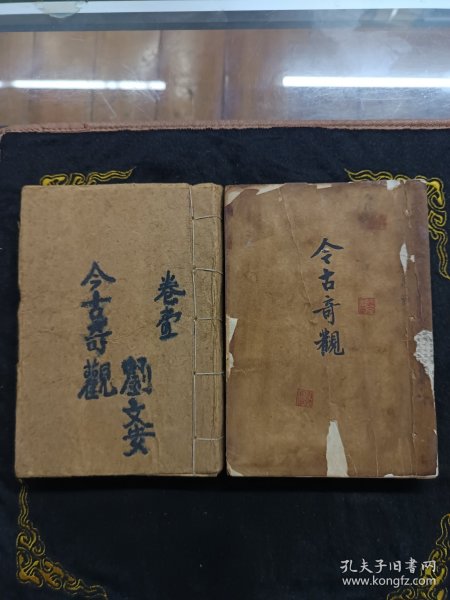 卷壹
今古奇觀
劉文安
今古奇觀
孔夫子旧书网
www.kongfz.com